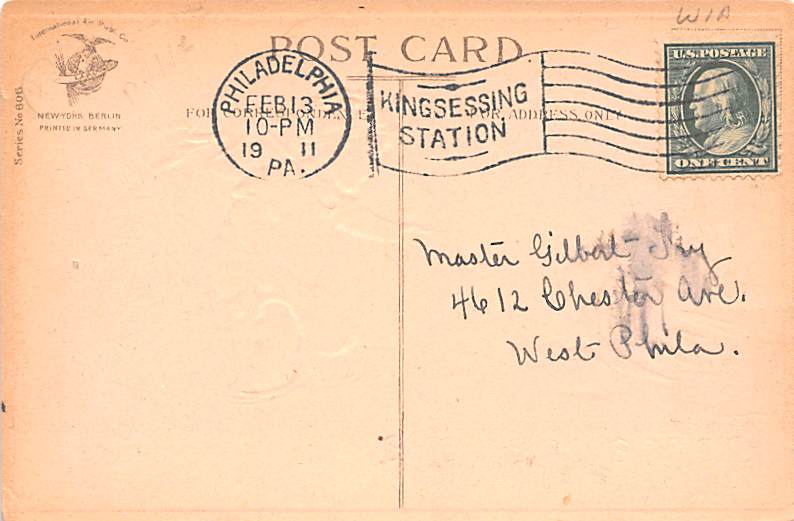 WIA
International Art Publ. Co.
POST CARD
U.S. POSTAGE
ONE CENT
PHILADELPHIA
FEB 13
10-PM
19 11
PA.
KINGSESSING
STATION
NEW-YORK BERLIN
PRINTED IN GERMANY
Series No 606
FOR CORRESPONDENCE
FOR ADDRESS ONLY
Master Gilbert
4612 Chester Ave.
West Phila.